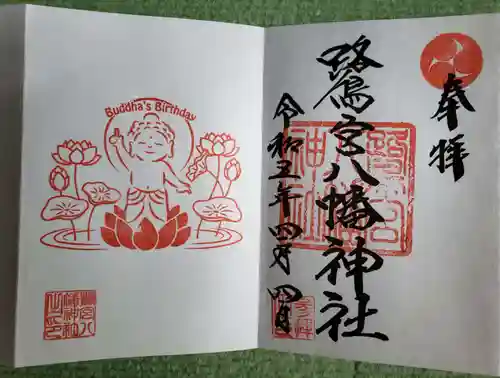 奉拝
鷺宮八幡神社
令和五年四月四日
Buddha's Birthday